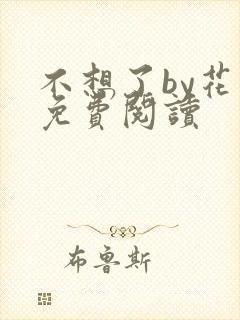 不想了by花
免費閱讀
布魯斯